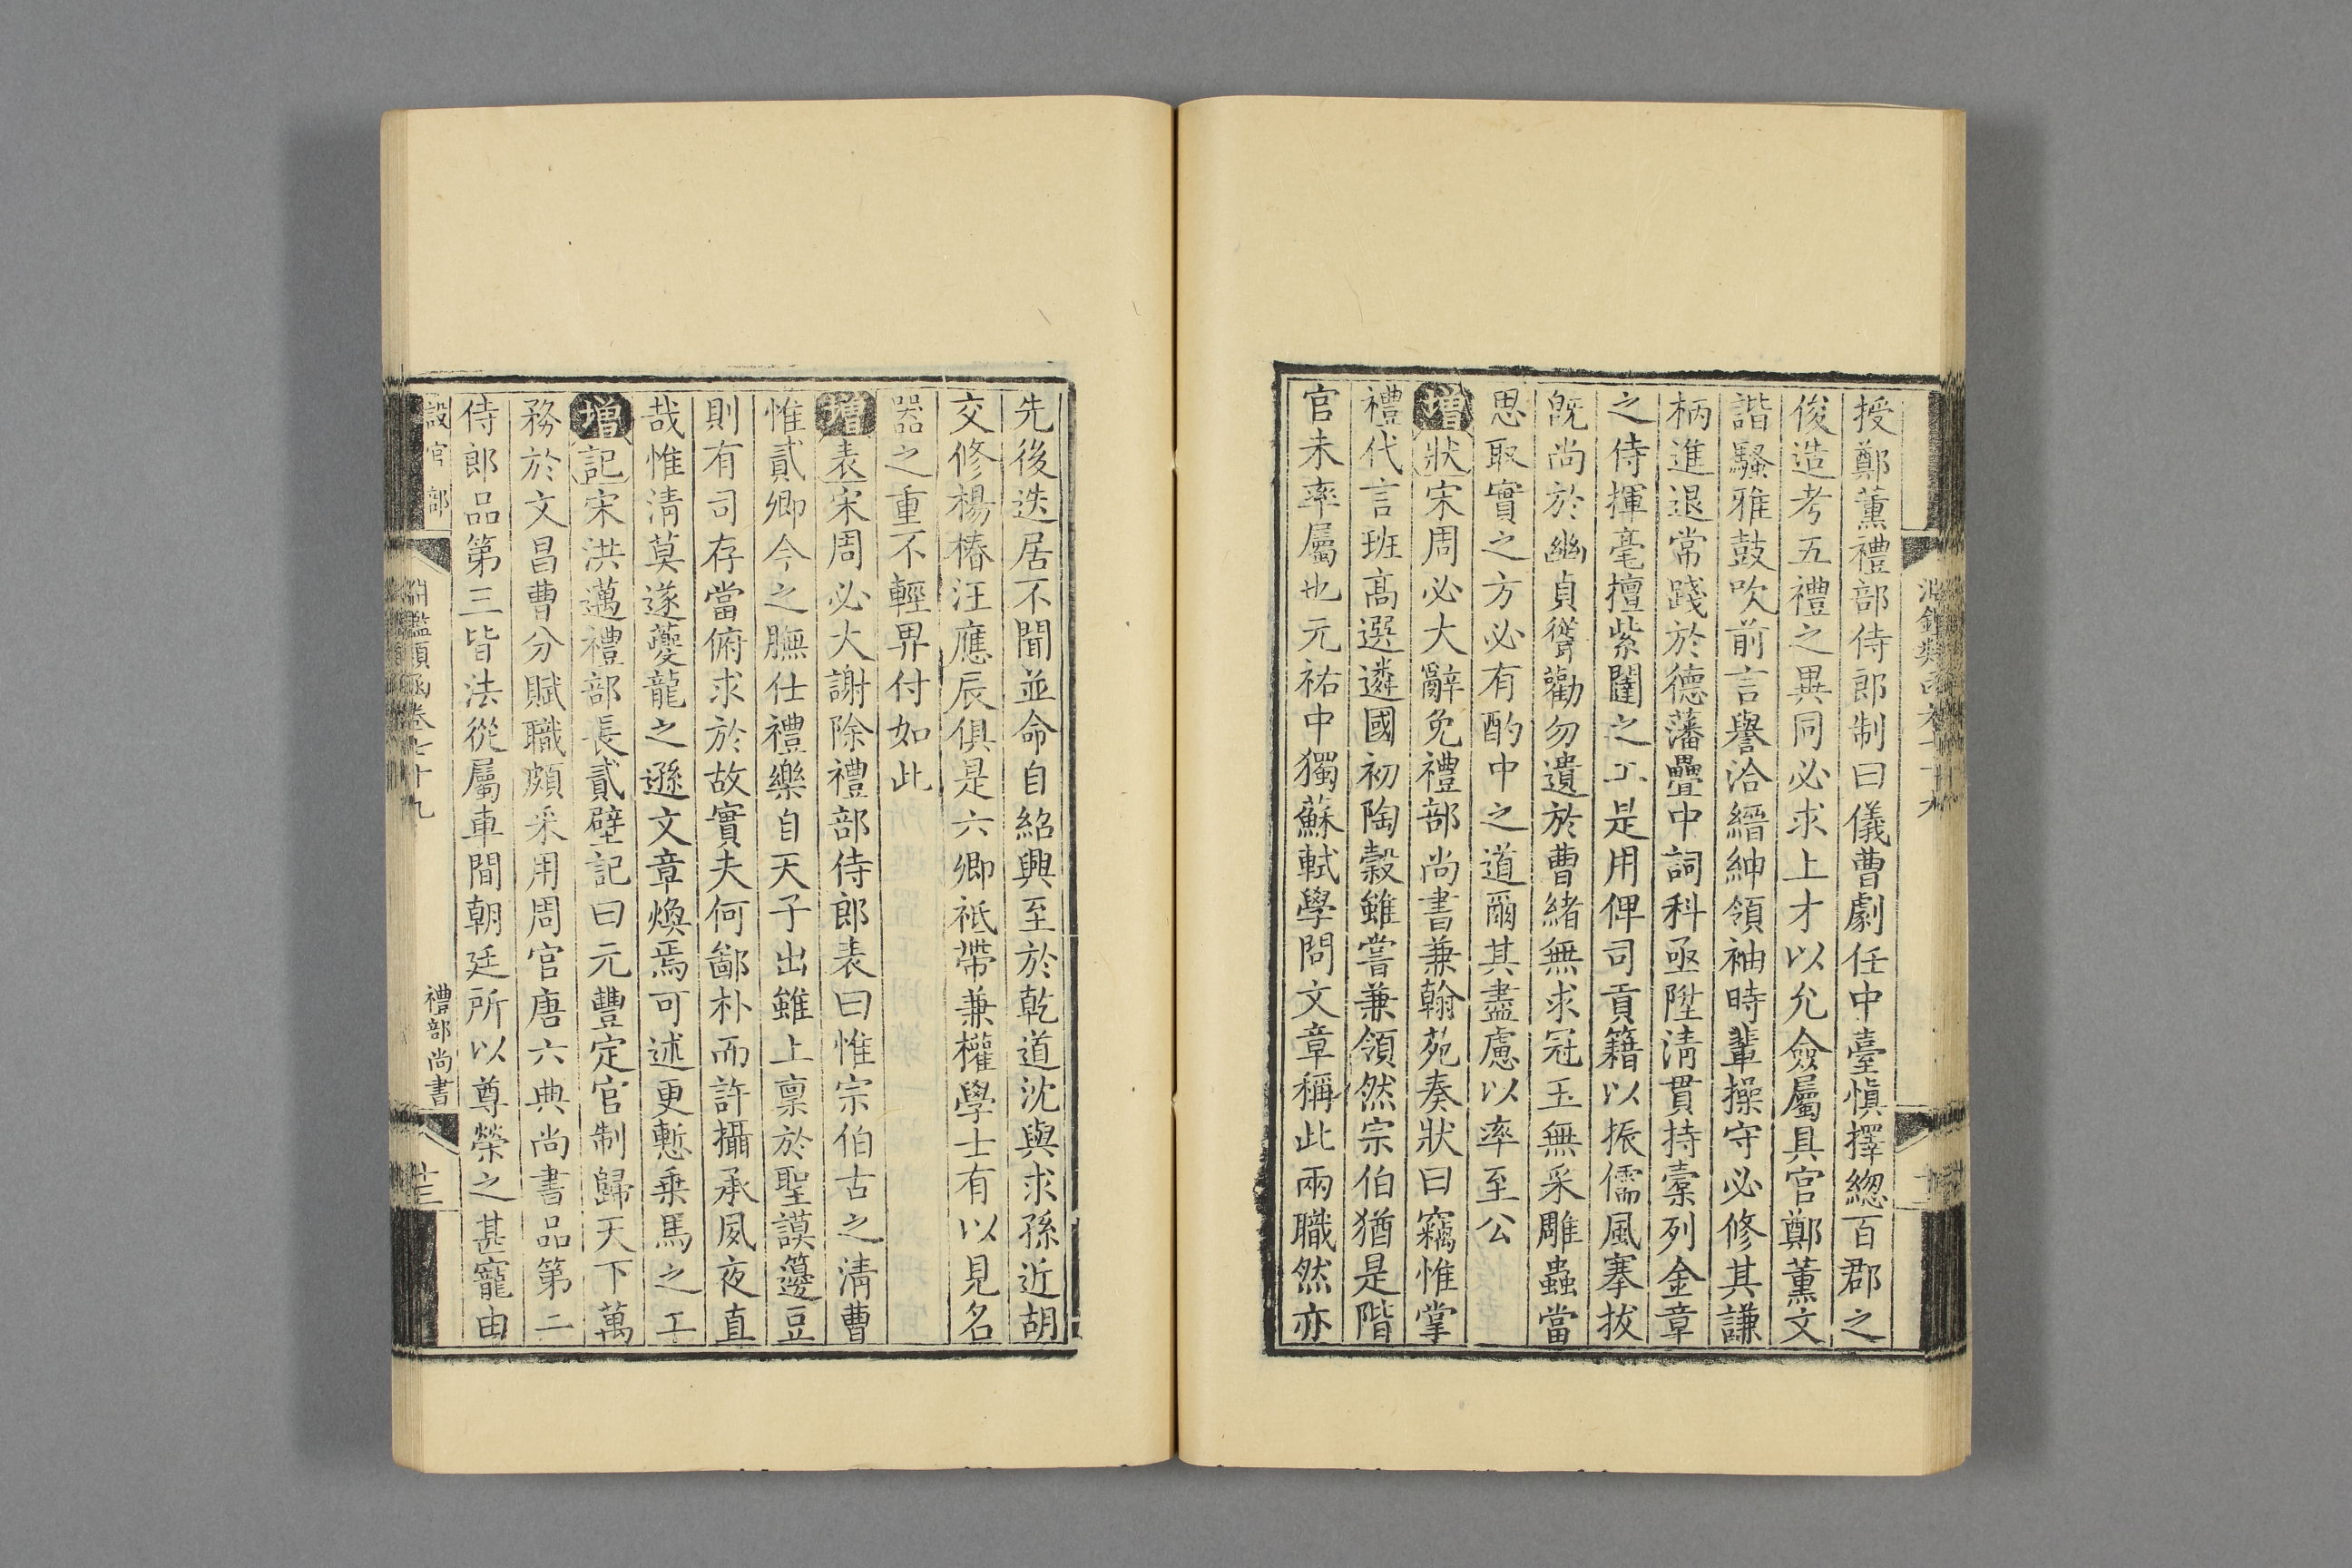 授鄭薰禮部侍郎制曰儀曹劇任中臺慎擇緫百郡之
俊造考五禮之異同必求上才以允僉屬具官鄭薰文
諧騷雅鼓吹前言譽洽縉紳領袖時輩操守必修其謙
柄進退常踐於德藩疊中詞科亟陞清貫持橐列金章
之侍揮毫擅紫闥之工是用俾司貢籍以振儒風搴拔
旣尚於幽貞聳勸勿遺於曹緒無求冠玉無采雕蟲當
思取實之方必有酌中之道爾其盡慮以率至公
增狀宋周必大辭免禮部尚書兼翰苑奏狀曰竊惟掌
禮代言班高選遴國初陶穀雖嘗兼領然宗伯猶是階
官未率屬也元祐中獨蘇軾學問文章稱此兩職然亦
先後迭居不聞並命自紹興至於乾道沈與求孫近胡
交修楊椿汪應辰俱是六卿祗帶兼權學士有以見名
器之重不輕畀付如此
增表宋周必大謝除禮部侍郎表曰惟宗伯古之清曹
惟貳卿今之膴仕禮樂自天子出雖上稟於聖謨籩豆
則有司存當俯求於故實夫何鄙朴而許攝承夙夜直
哉惟清莫遂夔龍之遜文章煥焉可述更慙乗馬之工
增記宋洪邁禮部長貳壁記曰元豐定官制歸天下萬
務於文昌曹分賦職頗采用周官唐六典尚書品第二
侍郎品第三皆法從屬車間朝廷所以尊榮之甚寵由
設官部
淵鑑類函卷七十九
禮部尚書
廿三